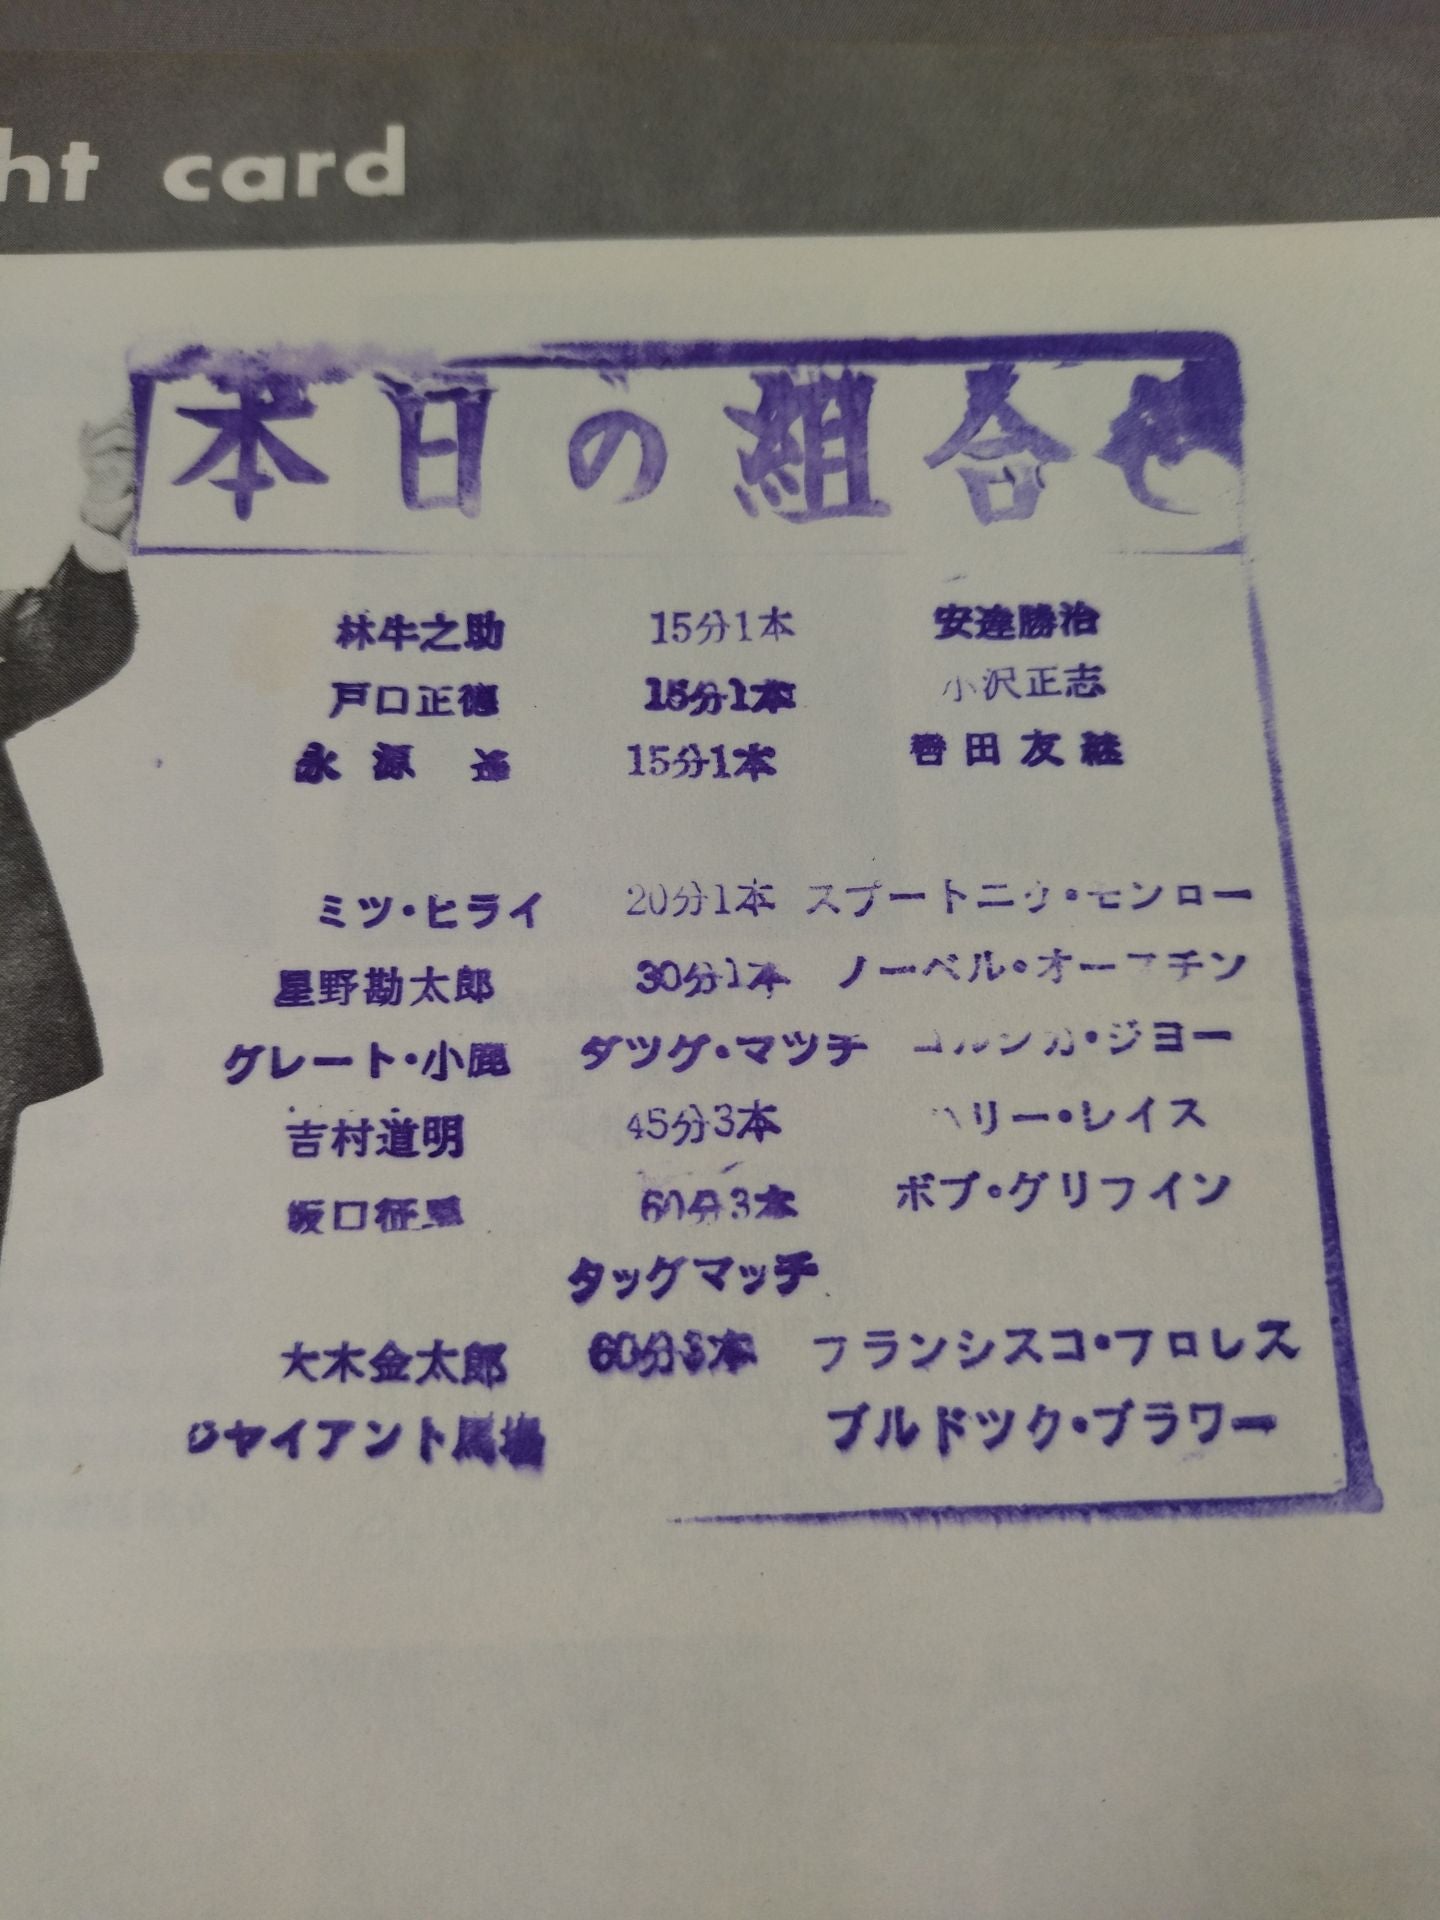 ht card
本日の組合せ
林牛之助 15分1本 安達勝治
戸口正徳 15分1本 小沢正志
永源遥 15分1本 轡田友継
ミツ・ヒライ 20分1本 スプートニク・モンロー
星野勘太郎 30分1本 ノーベル・オースチン
グレート・小鹿 タツグ・マツチ コルシカ・ジヨー
吉村道明 45分3本 ハリー・レイス
坂口征二 60分3本 ボブ・グリフイン
タッグマッチ
大木金太郎 60分3本 フランシスコ・フロレス
ジャイアント馬場 ブルドツク・ブラワー